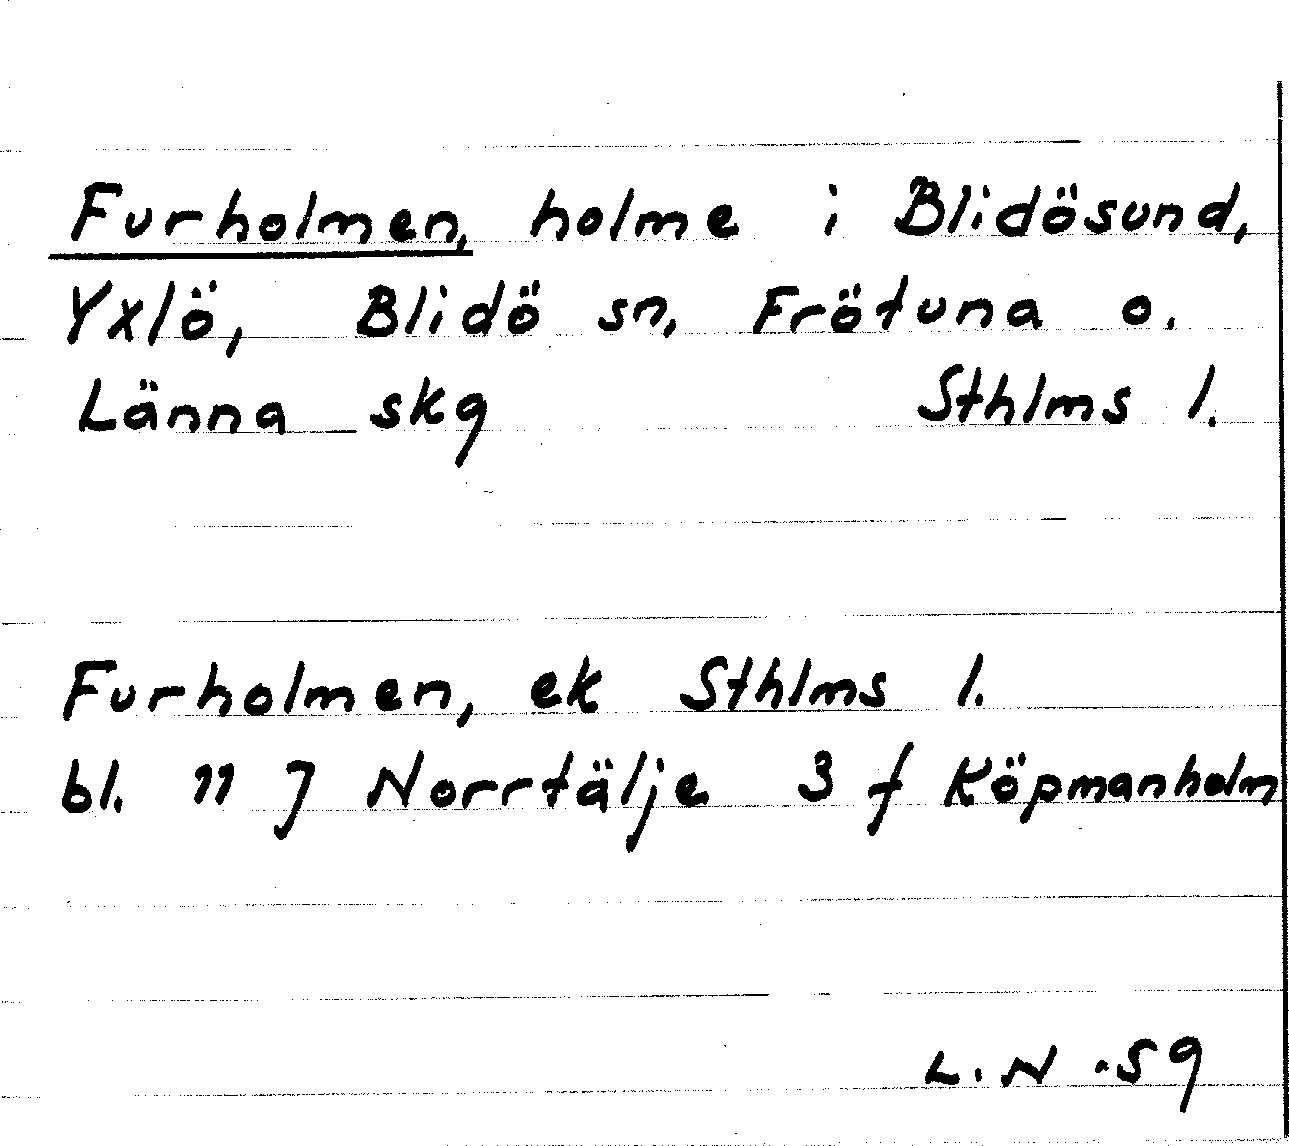 Furholmen, holme i Blidösund,
Yxlö, Blidö sn, Frötuna o.
Länna skg Sthlms l.
Furholmen, ek Sthlms l.
bl. 11 J Norrtälje 3 f Köpmanholm
L.N -59